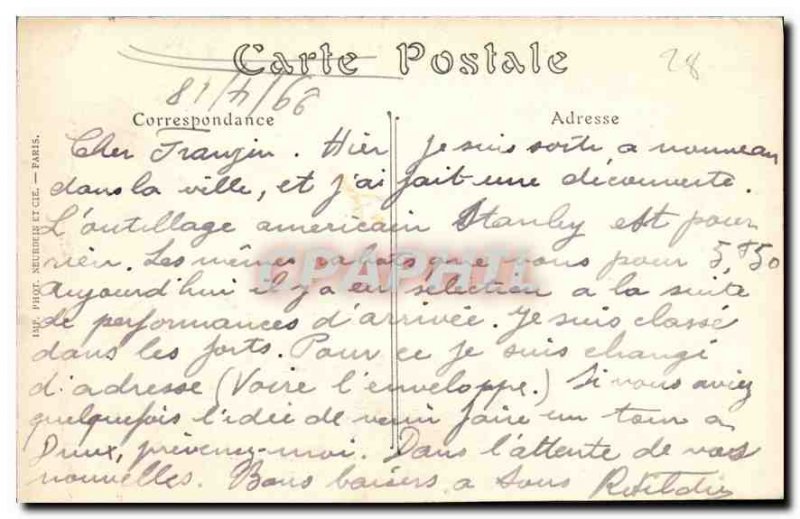 Carte Postale
28
81/4/66
Correspondance
Adresse
Cher Franzin. Hier je suis sorti a nouveau
dans la ville, et j'ai fait une découverte.
L'outillage americain Stanley est pour
rien. Les mêmes rabots que vous pour 5,f50
Aujourd'hui il y a eu sélection a la suite
de performances d'arrivée. Je suis classé
dans les forts. Pour ce je suis changé
d'adresse (Voire l'enveloppe.) Si vous aviez
quelquefois l'idée de venir faire un tour a
Dreux, prévenez-moi. Dans l'attente de vos
nouvelles. Bons baisers a Tous
IMP. PHOT. NEURDEIN ET CIE. — PARIS.
CPAPHIL